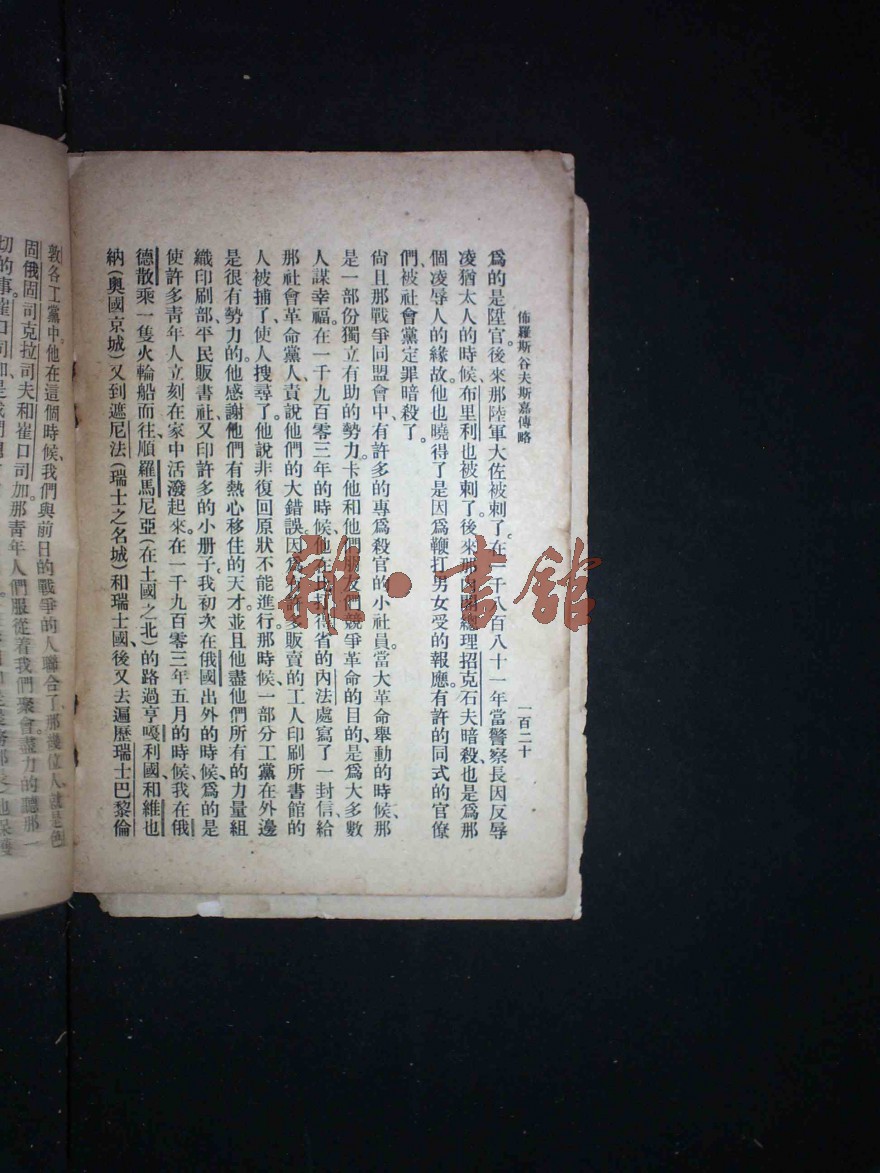 佈羅斯谷夫斯嘉傳略
一百二十
爲的是陞官。後來那陸軍大佐被刺了。在一千八百八十一年當警察長因反辱
凌猶太人的時候、布里利也被刺了。後來那內閣總理招克石夫暗殺、也是爲那
個凌辱人的緣故。他也曉得了是因爲鞭打男女受的報應。有許的同式的官僚
們、被社會黨定罪暗殺了。
尙且那戰爭同盟會中、有許多的專爲殺官的小社員。當大革命舉動的時候、那
是一部份獨立有助的勢力。卡他和他們朋友們競爭革命的目的、是爲大多數
人謀幸福。在一千九百零三年的時候、他在 得省的內法處寫了一封信給
那社會革命黨人、責說他們的大錯誤。因爲有許多販賣的工人印刷所書館的
人被捕了、使人搜尋了。他說非復回原狀不能進行。那時候一部分工黨在外邊
是很有勢力的。他感謝他們有熱心移住的天才。並且他盡他們所有的力量組
織印刷部、平民販書社、又印許多的小册子。我初次在俄國出外的時候、爲的是
使許多靑年人立刻在家中活潑起來。在一千九百零三年五月的時候、我在俄
德散乘一隻火輪船而往、順羅馬尼亞(在土國之北)的路過亨嘎利國和維也
納(奧國京城)又到遮尼法(瑞士之名城)和瑞士國、後又去遍歷瑞士巴黎倫
敦各工黨中。他在這個時候、我們與前日的戰爭的人聯合了、那幾位人、就是色
固俄固司克拉司夫和崔口司。加那靑年人們服從着我們聚會、盡力的聽那一
切的事。崔口司加是我們
雜·書館